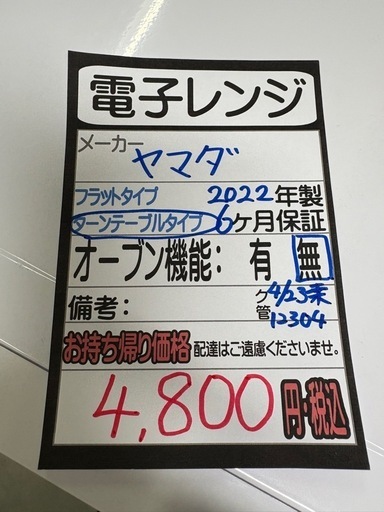 電子レンジ
メーカー ヤマダ
フラットタイプ 2022年製
ターンテーブルタイプ 6ヶ月保証
オーブン機能： 有 無
備考：
4/23東
管12304
お持ち帰り価格 配達はご遠慮くださいませ。
4,800円・税込